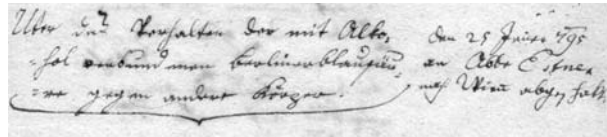 Über das Verhalten der mit Alko,
-hol verbundenen Berlinerblausäu-
-re gegen andere Körper.
den 25 Jener 795
an Abbe Estner
nach Wien abgeschickt